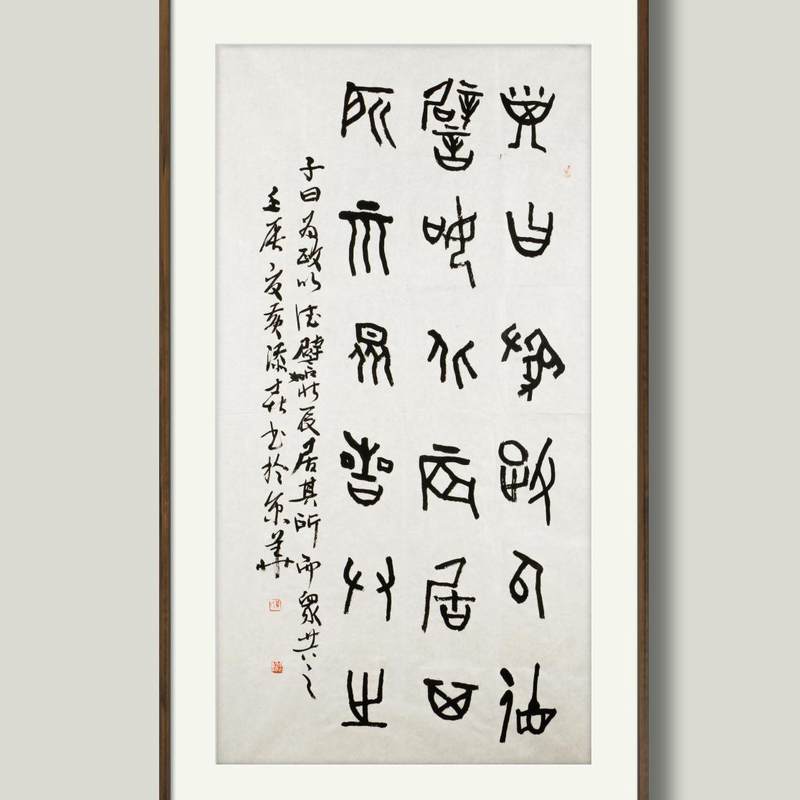 子曰為政以德
譬如北辰居其
所而眾星共之
子曰為政以德譬如北辰居其所而眾共之
夏黃添喜书於京華